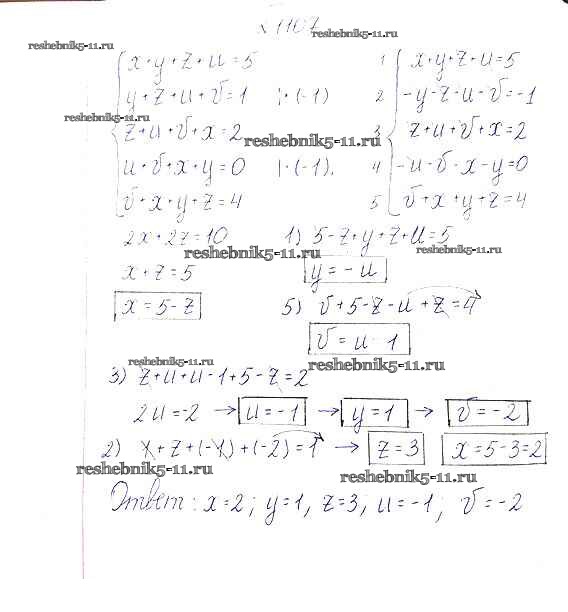 № 1107
reshebnik5-11.ru
reshebnik5-11.ru
x+y+z+u=5
y+z+u+v=1 |·(-1)
z+u+v+x=2
u+v+x+y=0 |·(-1).
v+x+y+z=4
1 x+y+z+u=5
2 -y-z-u-v=-1
3 z+u+v+x=2
4 -u-v-x-y=0
5 v+x+y+z=4
reshebnik5-11.ru
reshebnik5-11.ru
2x+2z=10
x+z=5
x=5-z
reshebnik5-11.ru
reshebnik5-11.ru
1) 5-z+y+z+u=5
y=-u
5) v+5-z-u+z=4
v=u-1
reshebnik5-11.ru
reshebnik5-11.ru
3) z+u+u-1+5-z=2
2u=-2 → u=-1 → y=1 → v=-2
2) 1+z+(-1)+(-2)=1 → z=3 x=5-3=2
reshebnik5-11.ru
reshebnik5-11.ru
Ответ: x=2; y=1, z=3, u=-1, v=-2